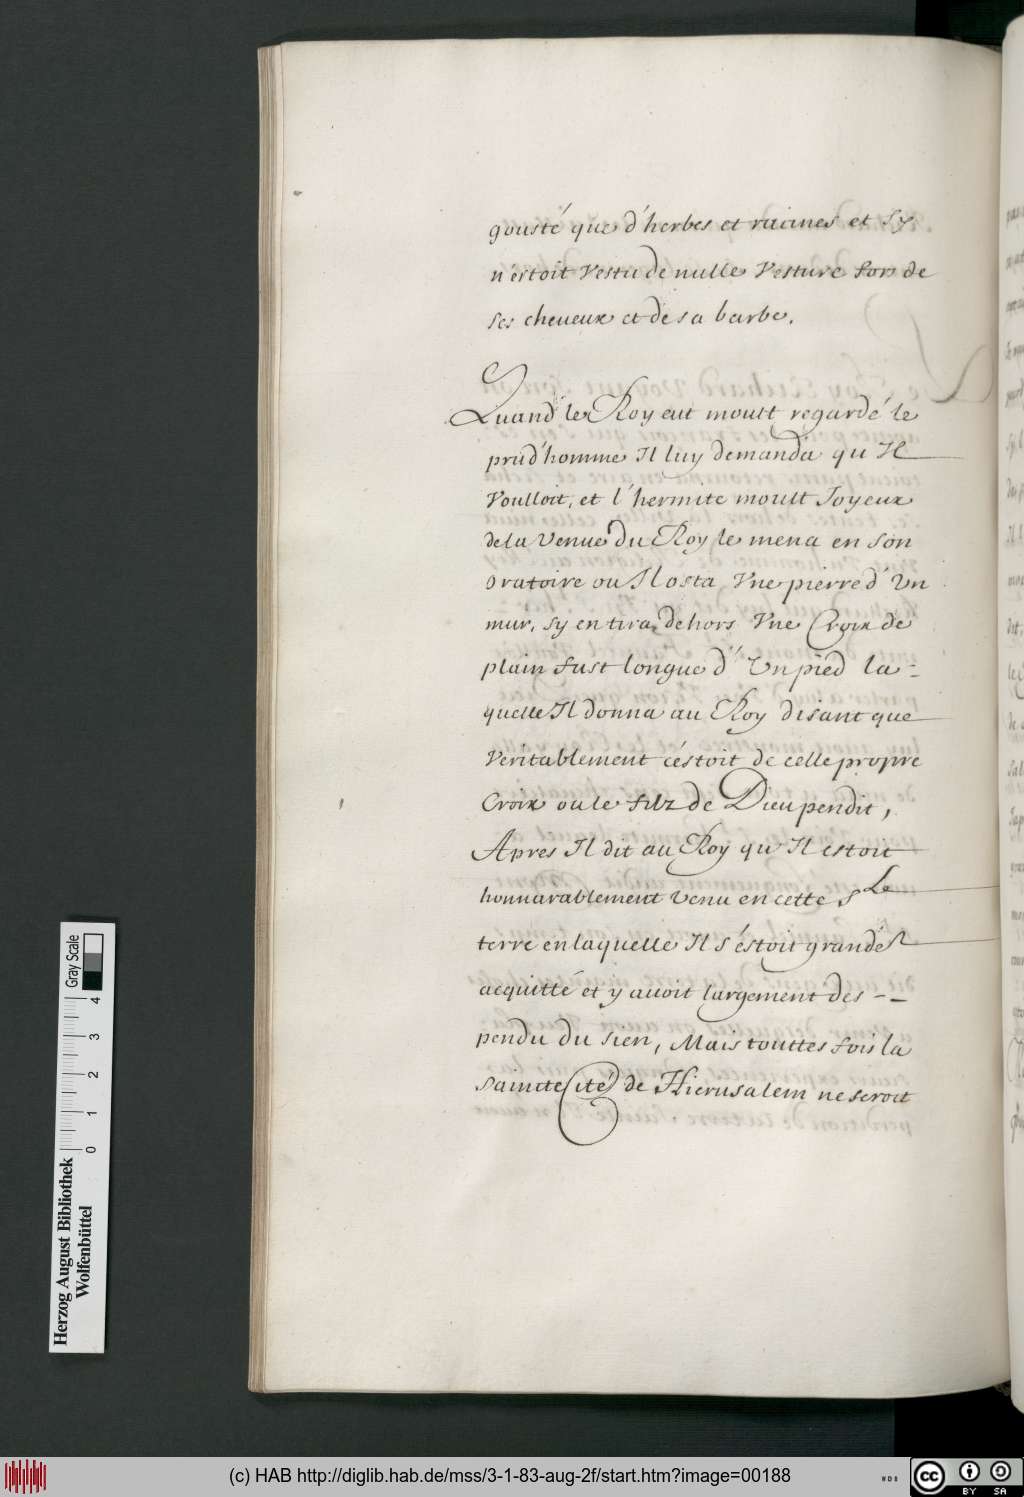 gousté que d'herbes et racines et sy
n'estoit Vestu de nulle Vesture fors de
ses cheueux et de sa barbe.
Quand le Roy eut moult regardé le
prud'homme Il luy demanda qu'Il
Voulloit, et l'hermite moult Joyeux
de la Venue du Roy le mena en son
oratoire ou Il osta Vne pierre d'Un
mur, sy en tira dehors Vne Croix de
plain fust longue d'Un pied la-
quelle Il donna au Roy disant que
Veritablement c'estoit de celle propre
Croix ou le filz de Dieu pendit,
Apres Il dit au Roy qu'Il estoit
honnarablement Venu en cette Ste
terre en laquelle Il s'éstoit grandet
acquitté et y auoit largement des--
pendu du sien, Mais touttes fois la
saincte Cité de Hierusalem ne seroit
Herzog August Bibliothek
Wolfenbüttel
Gray Scale
0 1 2 3 4
(c) HAB http://diglib.hab.de/mss/3-1-83-aug-2f/start.htm?image=00188
WDB
CC BY SA